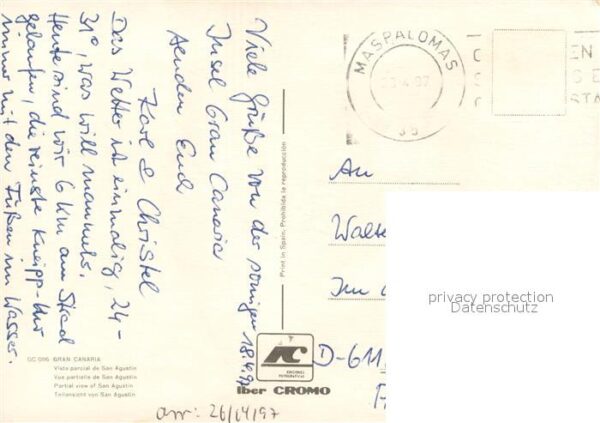 Viele Grüße von der sonnigen 18.4.97
Insel Gran Canaria
senden Euch
Karl & Christel
Das Wetter ist einmalig, 24-
31°, was will man mehr.
Heute sind wir 6 km am Strand
gelaufen, die reinste Kneipp-Kur
immer mit den Füßen im Wasser.
GC 096 GRAN CANARIA
Vista parcial de San Agustin
Vue partielle de San Agustin
Partial view of San Agustin
Teilansicht von San Agustin
Print in Spain. Prohibida la reproducción
iber CROMO
MASPALOMAS
An
Walte
Im
D-611
arr: 26/04/97
privacy protection
Datenschutz